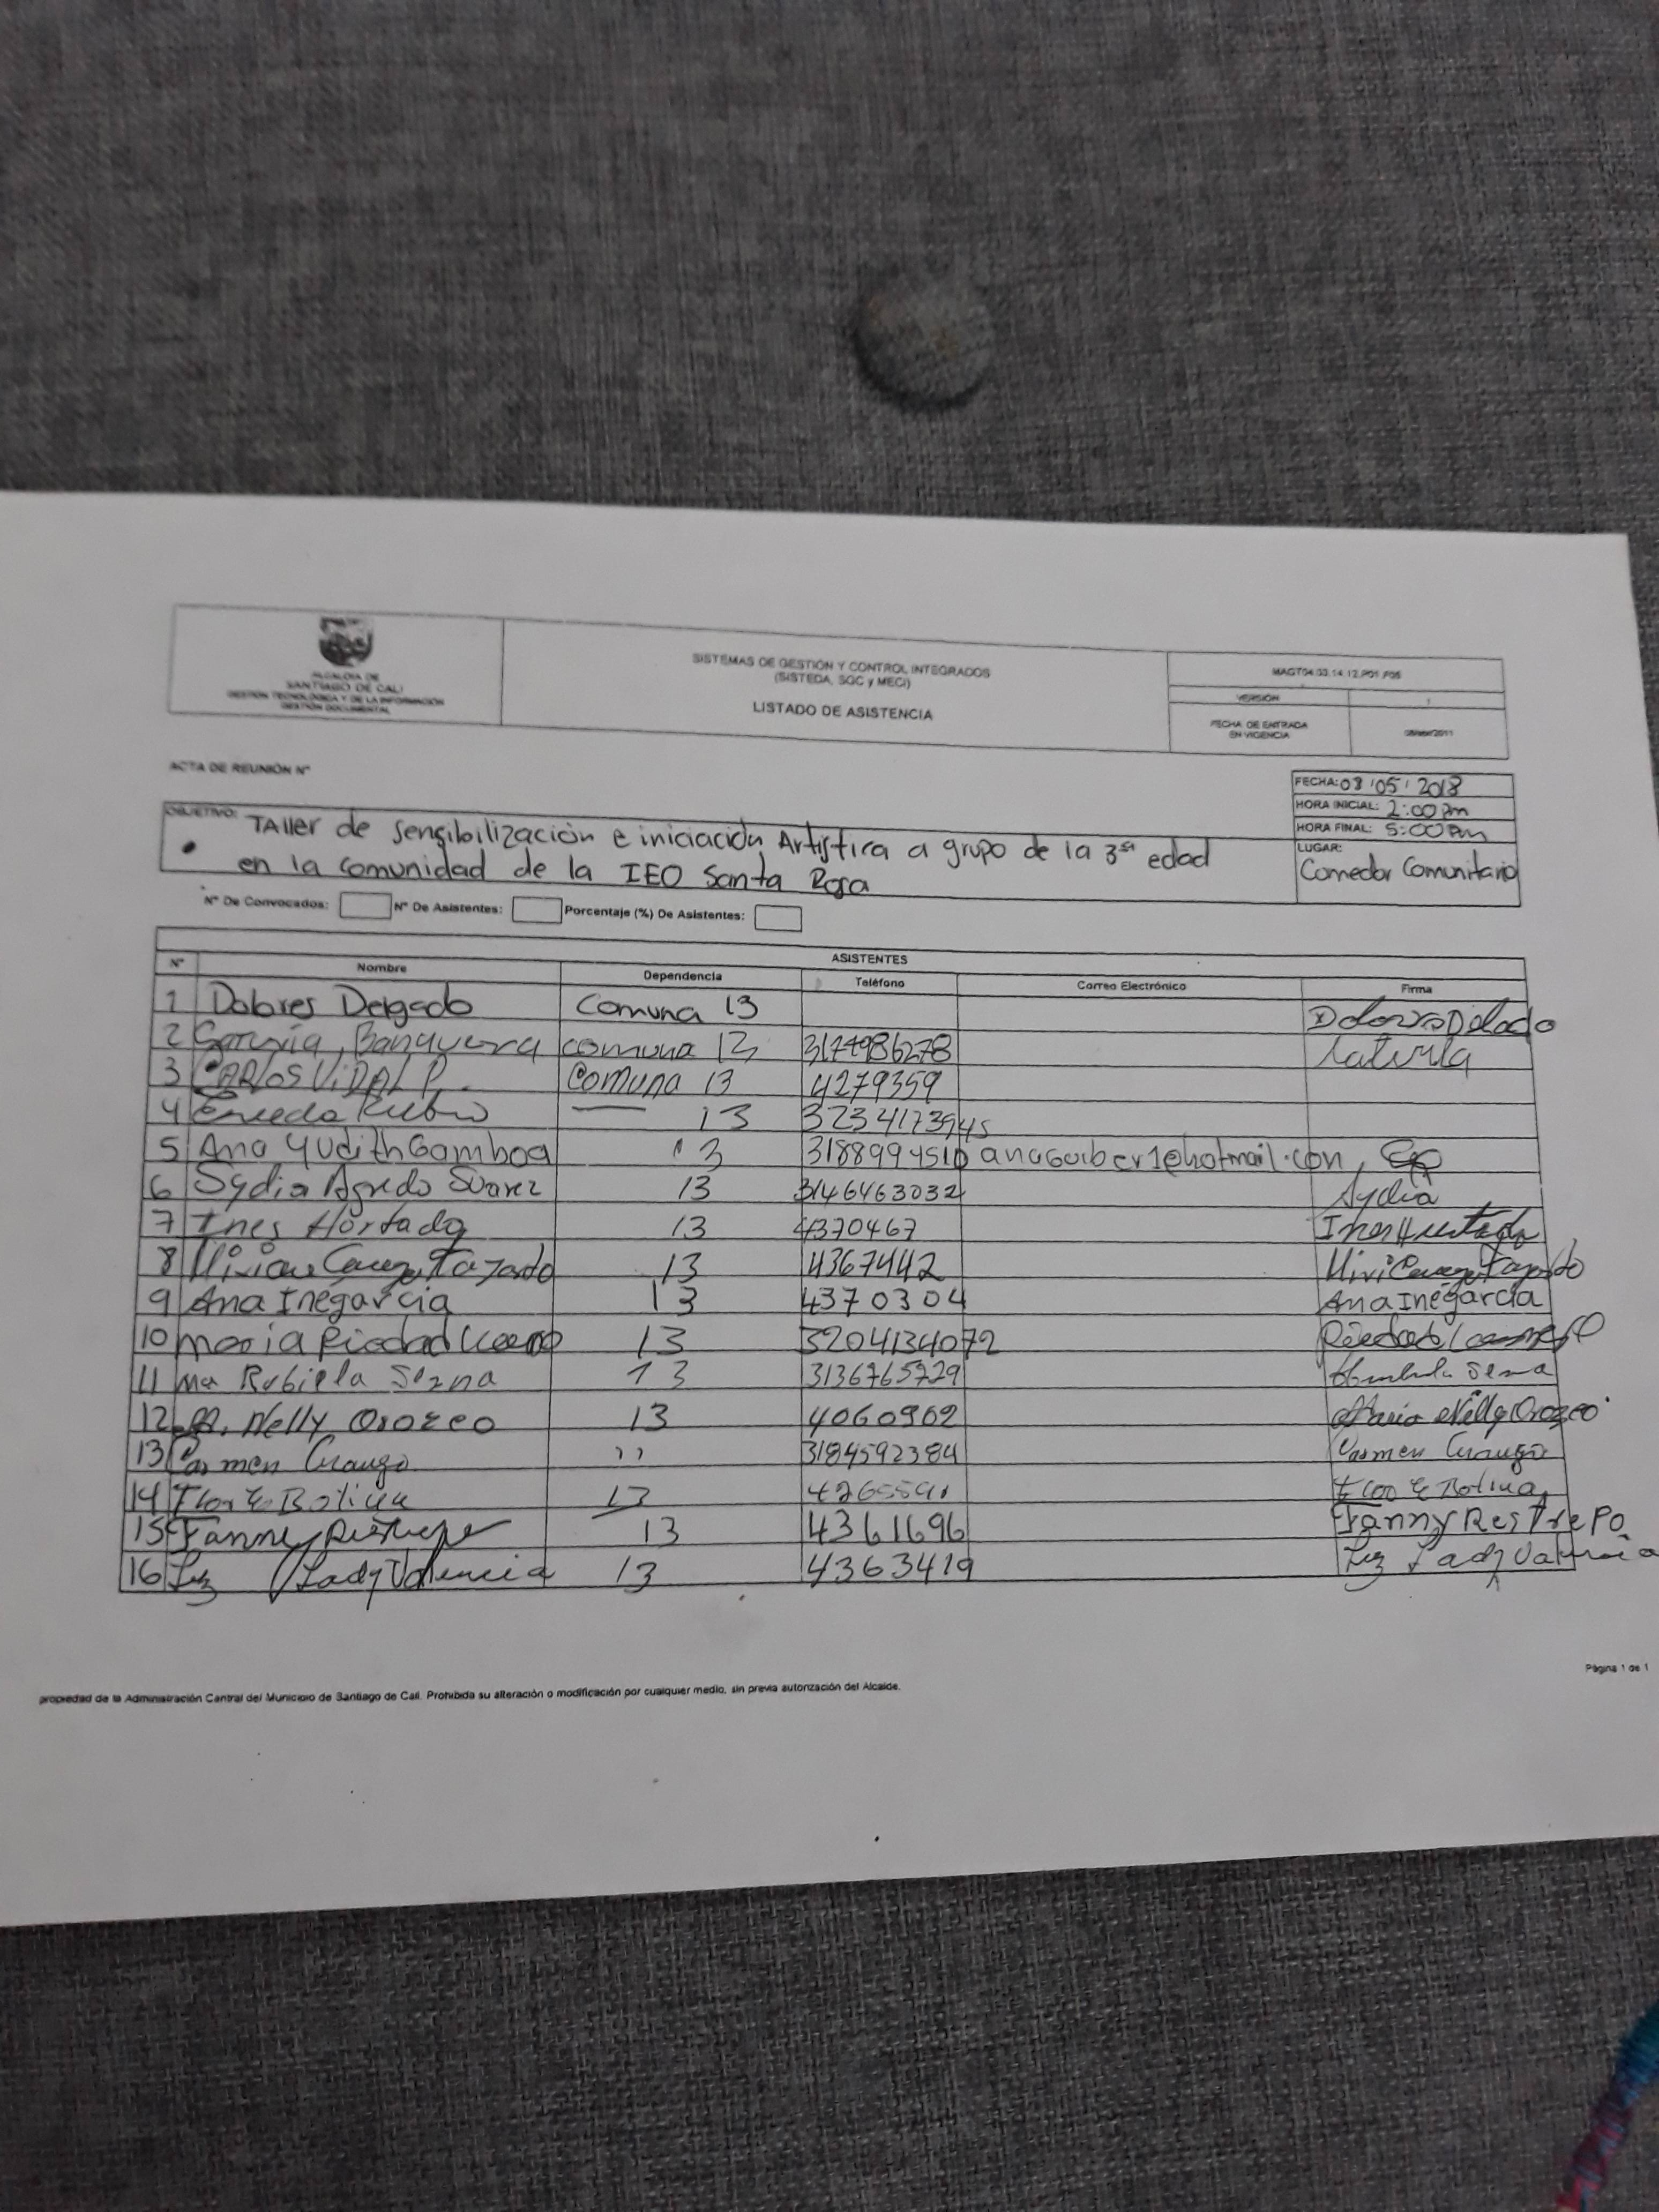 ALCALDIA DE
SANTIAGO DE CALI
GESTION TECNOLÓGICA Y DE LA INFORMACIÓN
GESTIÓN DOCUMENTAL
SISTEMAS DE GESTIÓN Y CONTROL INTEGRADOS
(SISTEDA, SGC y MECI)
LISTADO DE ASISTENCIA
MAGT04.03.14.12.P01.F05
VERSIÓN 1
FECHA DE ENTRADA
EN VIGENCIA
ACTA DE REUNIÓN N°
FECHA: 03/05/2018
HORA INICIAL: 2:00 Pm
HORA FINAL: 5:00 Pm
LUGAR:
Comedor Comunitario
OBJETIVO: TAller de sensibilización e iniciación Artistica a grupo de la 3ra edad
en la comunidad de la IEO Santa Rosa
N° De Convocados: N° De Asistentes: Porcentaje (%) De Asistentes:
ASISTENTES
N° Nombre Dependencia Teléfono Correo Electrónico Firma
1 Dolores Delgado Comuna 13
2 comuna 13 3174986278
3 CARlOS ViDAl P. Comuna 13 4279359
4 13 3234173945
5 Ana Yudith Gamboa 13 3188994510
6 Sydia Agredo Suarez 13 3146463032 Sydia
7 Ines Hortado 13 4370467
8 13 4367442
9 Ana Inegarcia 13 4370304 Ana Inegarcia
10 maria Piedad 13 3204134072
11 ma Rubiela Serna 13 3136765729 Serna
12 M. Nelly Orozco 13 4060902 Maria Nelly Orozco
13 Carmen " 3184592384 Carmen
14 Flor E Bolivar 13
15 Fanny Restrepo 13 4361696 Fanny Restrepo
16 Luz Lady Valencia 13 4363419 Luz Lady Valencia
Página 1 de 1
propiedad de la Administración Central del Municipio de Santiago de Cali. Prohibida su alteración o modificación por cualquier medio, sin previa autorización del Alcalde.